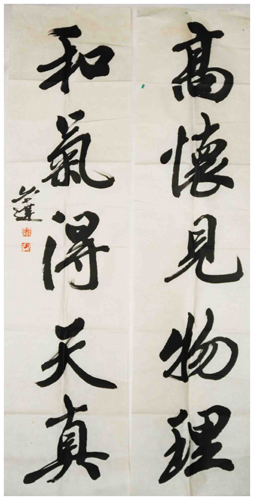 高懷見物理
和氣得天真